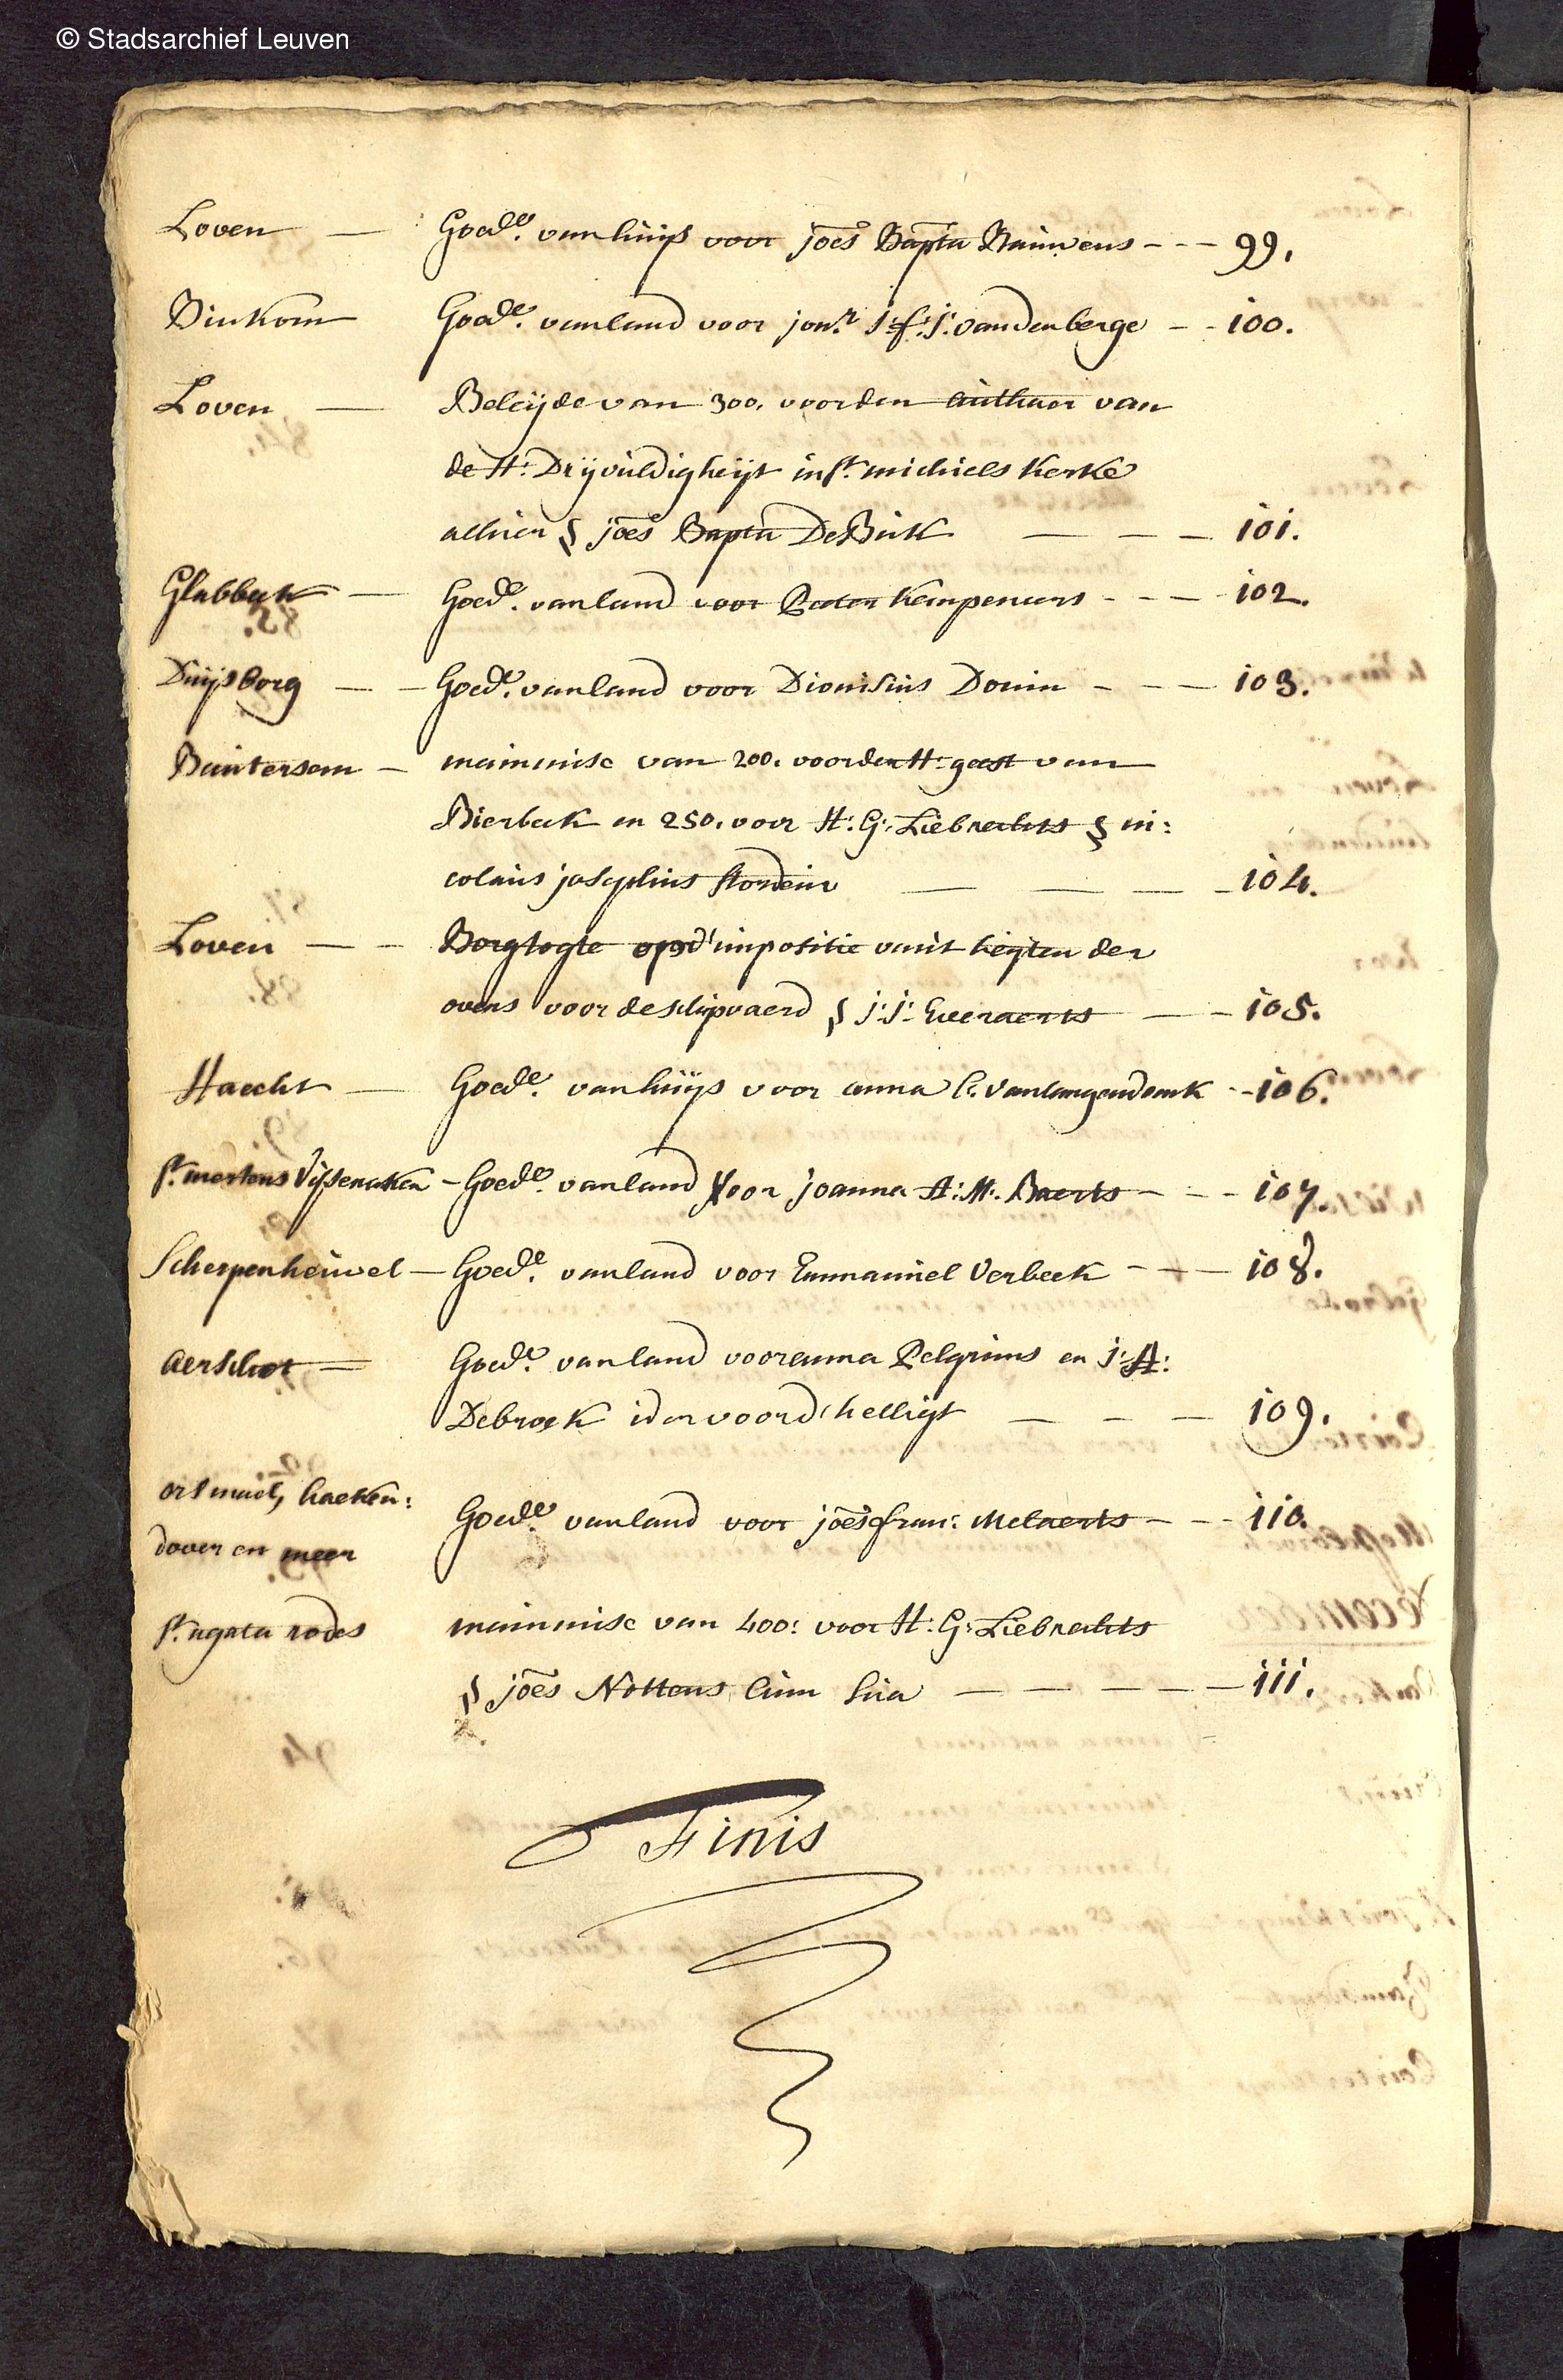 © Stadsarchief Leuven
Loven — Goede. van huijs voor joēs Bapta Nauwens - - - 99.
Binkom Goede. van land voor jonr. j: f: j: vandenberge - - 100.
Loven — Beleijde van 300. voor den authaer van
de H: Drijvuldigheijt in St. michiels Kerke
alhier § joēs Bapta De Bink — — — 101.
Glabbeek — Goede. van land voor Peeter Kempeneers - - — 102.
Duijsborg — — Goede. van land voor Dionisius Donin - - — 103.
Bautersem — mainmise van 200. voor den H: geest van
Bierbeek en 250. voor H: G: Liebrechts § ni:
colaus josephus Stordeur — — — 104.
Loven — - Borgtogte op d'impositie van't heijten der
ovens voor de schipvaerd § j: j: Everaerts — - 105.
Haecht — Goede. van huijs voor anna C: Vanlangendonk - - 106.
St. mertens Vissenaken - Goede. van land Voor joanna A: M: Baerts - - - 107.
Scherpenheuvel — Goede. van land voor Emmanuel Verbeek - — — 108.
aerschot — Goede. van land voor anna Pelgrims en j: A:
Debroek ider voor d'helligt — — — 109.
orsmael, haeken:
dover en meer Goede. van land voor joēs fran: Melaerts - - - 110.
St. agata rodes mainmise van 400: voor H: G: Liebrechts
§ joēs Nottens cum sua — — — — 111.
Finis